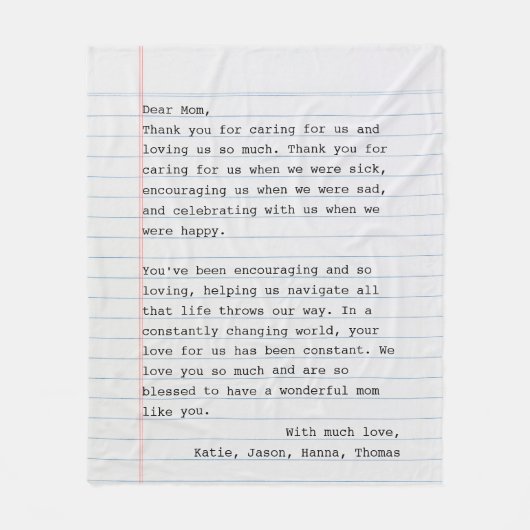 Dear Mom,
Thank you for caring for us and
loving us so much. Thank you for
caring for us when we were sick,
encouraging us when we were sad,
and celebrating with us when we
were happy.
You've been encouraging and so
loving, helping us navigate all
that life throws our way. In a
constantly changing world, your
love for us has been constant. We
love you so much and are so
blessed to have a wonderful mom
like you.
With much love,
Katie, Jason, Hanna, Thomas